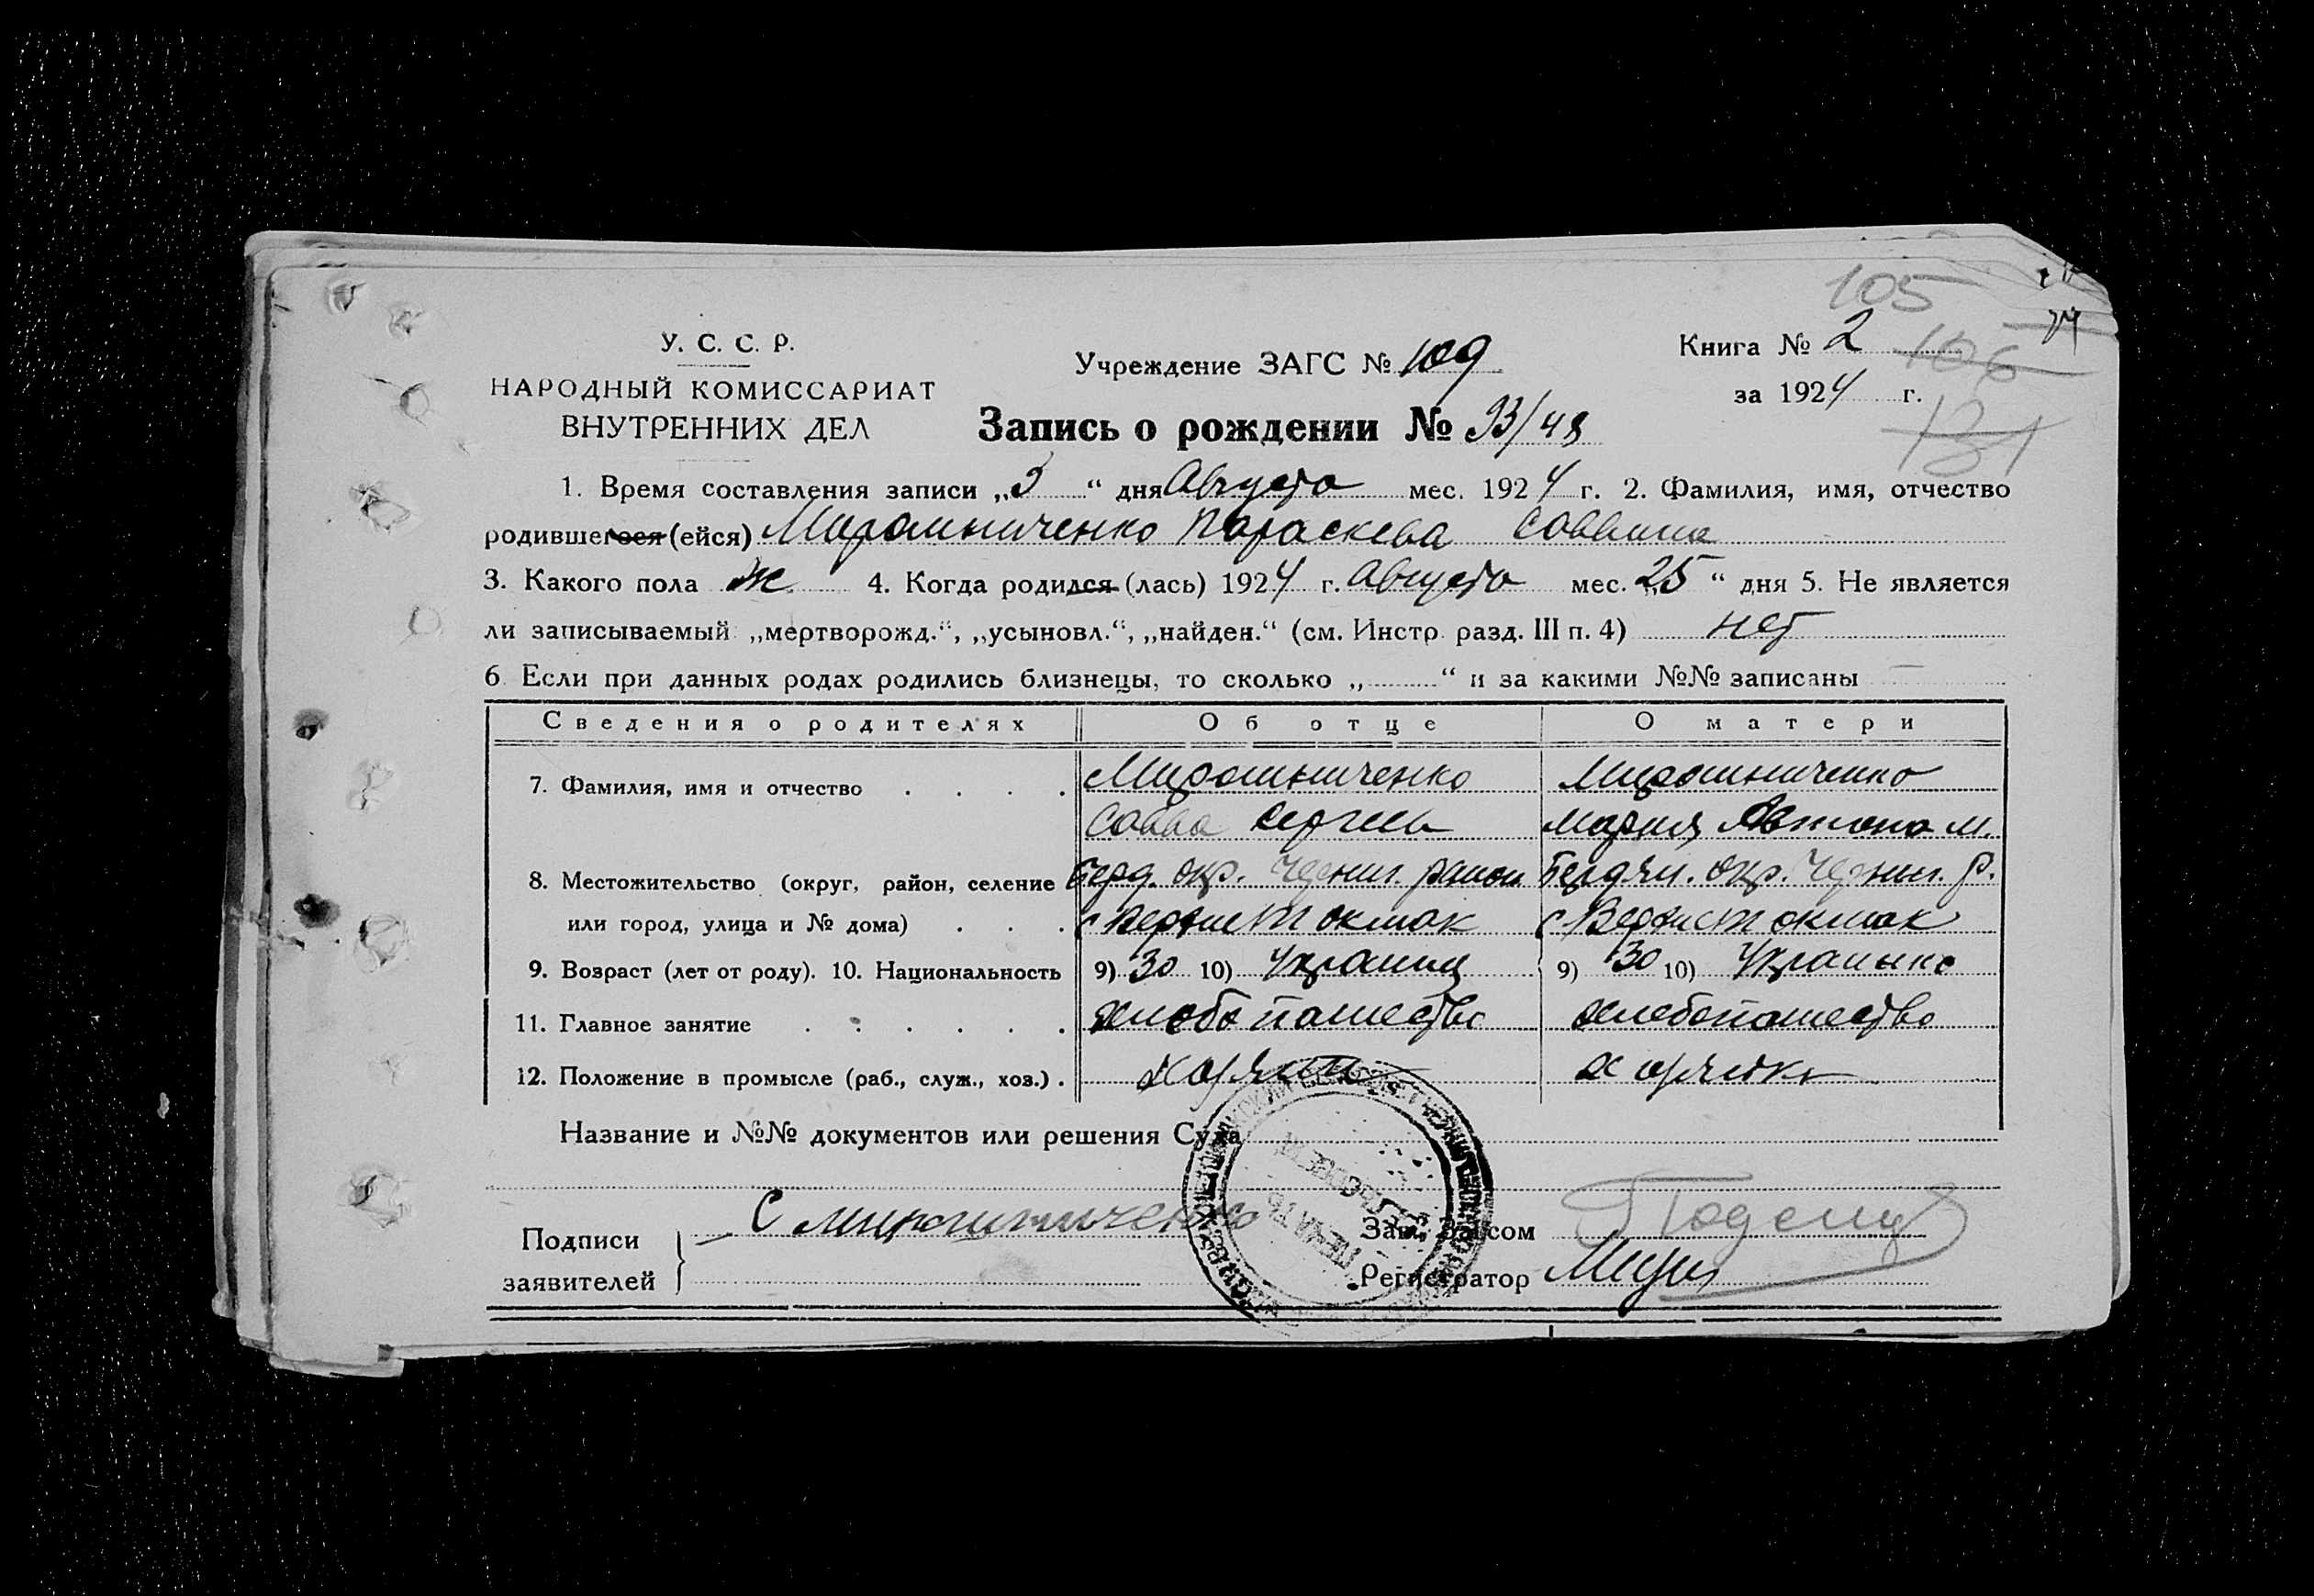 105
У. С. С. Р.
НАРОДНЫЙ КОМИССАРИАТ
ВНУТРЕННИХ ДЕЛ
Учреждение ЗАГС № 109
Книга № 2
106
за 1924 г.
131
Запись о рождении № 93/48
1. Время составления записи „3“ дня Августа мес. 1924 г. 2. Фамилия, имя, отчество
родившегося (ейся) Мирошниченко Параскева Саввина
3. Какого пола Ж. 4. Когда родился (лась) 1924 г. Августа мес. „25“ дня 5. Не является
ли записываемый „мертворожд.“, „усыновл.“, „найден.“ (см. Инстр. разд. III п. 4) нет
6. Если при данных родах родились близнецы, то сколько „ “ и за какими №№ записаны —
Сведения о родителях Об отце О матери
7. Фамилия, имя и отчество . . . . Мирошниченко Мирошниченко
Савва Сергеев Мария Автоном.
8. Местожительство (округ, район, селение Берд. окр. Черниг. район Бердян. окр. Черниг. р.
или город, улица и № дома) . . . с Верхне Токмак с Верхне Токмак
9. Возраст (лет от роду). 10. Национальность 9) 30 10) Украинц 9) 30 10) Украинка
11. Главное занятие . . . . . . хлебопашество хлебопашество
12. Положение в промысле (раб., служ., хоз.) . хозяин хозяйка
Название и №№ документов или решения Суда
Подписи
заявителей
С Мирошниченко
Зав. Загсом
Регистратор